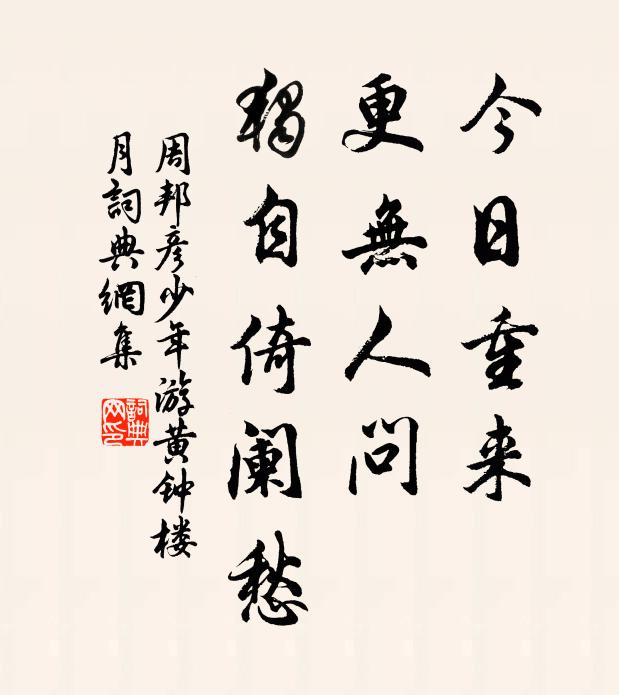 今日重来
更無人問
獨自倚阑愁
周邦彦少年游黄钟楼
月詞典網集
詞典
网印